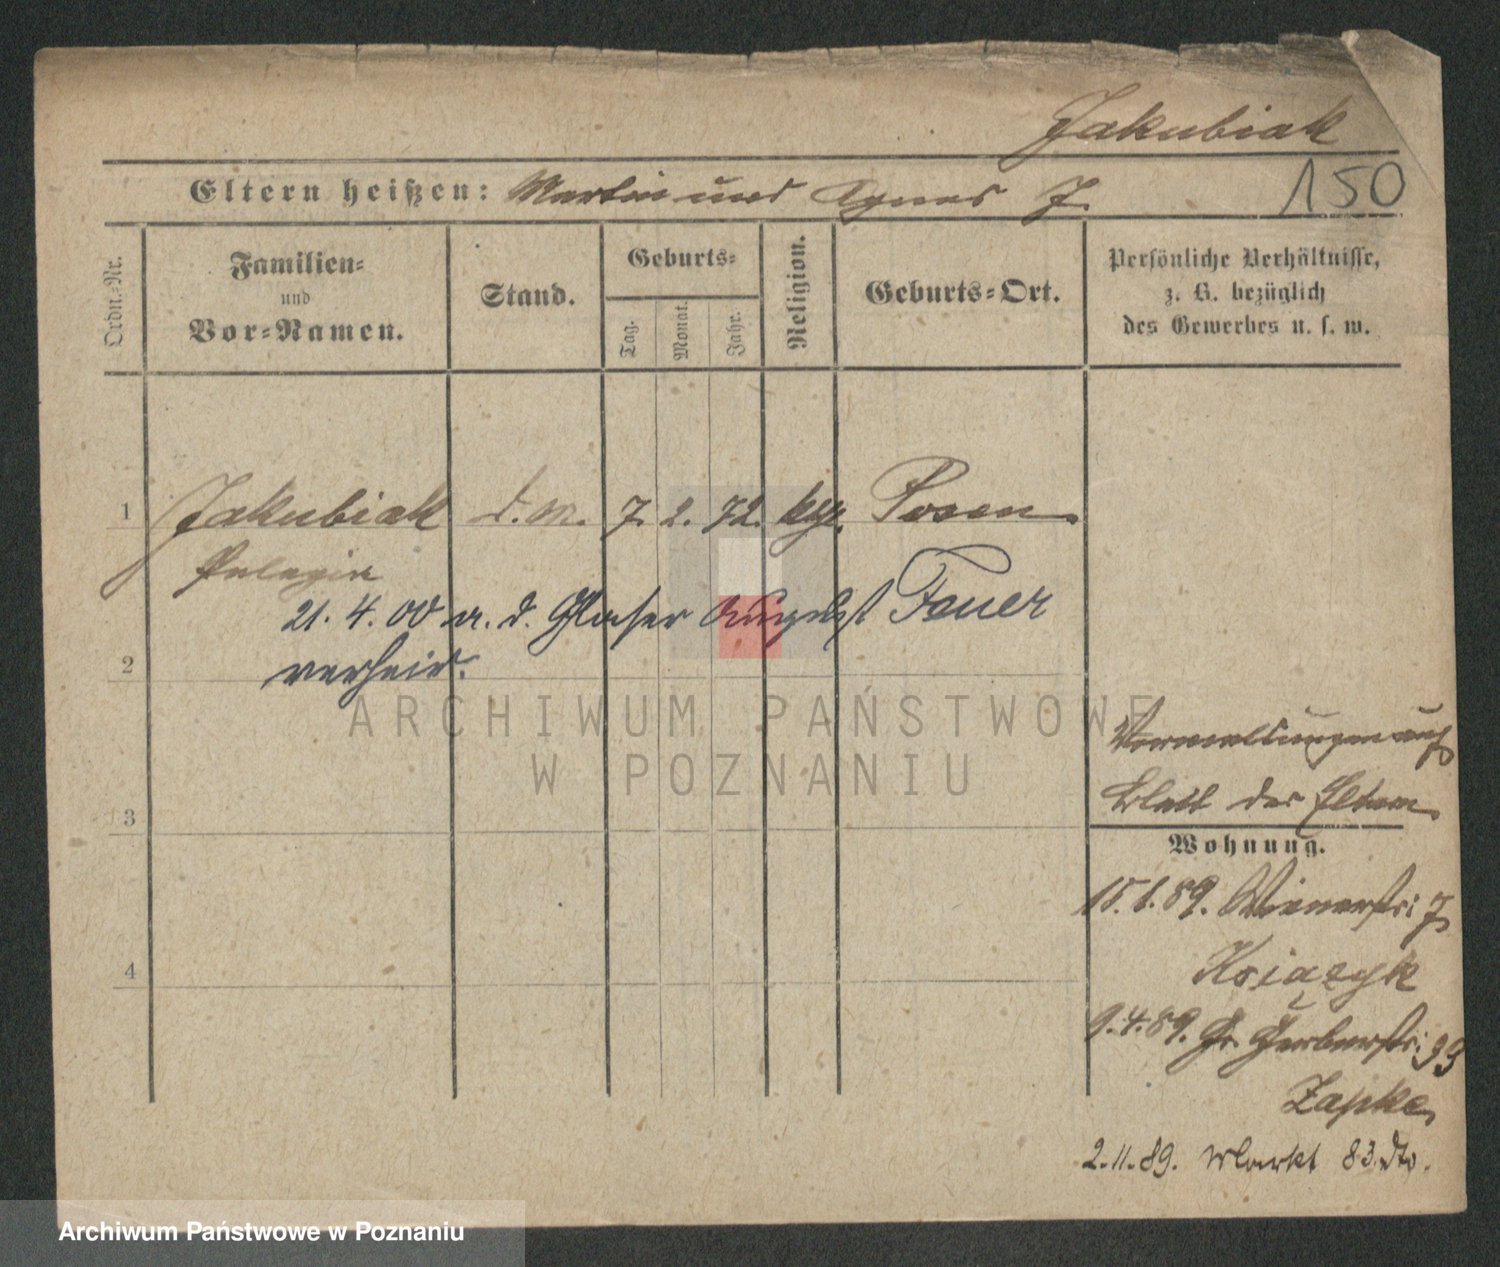 Jakubiak
150
Eltern heißen: Martin und Agnes J.
Ordn.-Nr.
Familien-
und
Vor-Namen.
Stand.
Geburts-
Tag.
Monat.
Jahr.
Religion.
Geburts-Ort.
Persönliche Verhältnisse,
z. B. bezüglich
des Gewerbes u. s. w.
1 Jakubiak d. M. 7. 2. 72. kg. Posen
Pelagia
21. 4. 00 a. d. Glaser August Feuer
2 verheir.
ARCHIWUM PAŃSTWOWE
W POZNANIU
auf
3 Blatt der Eltern
Wohnung.
15.1.89. Wienerstr: 7
4 Ksiązyk
9.4.89. Gr. Gerberstr:
Zapke
2.11.89. Markt 83. dto.
Archiwum Państwowe w Poznaniu